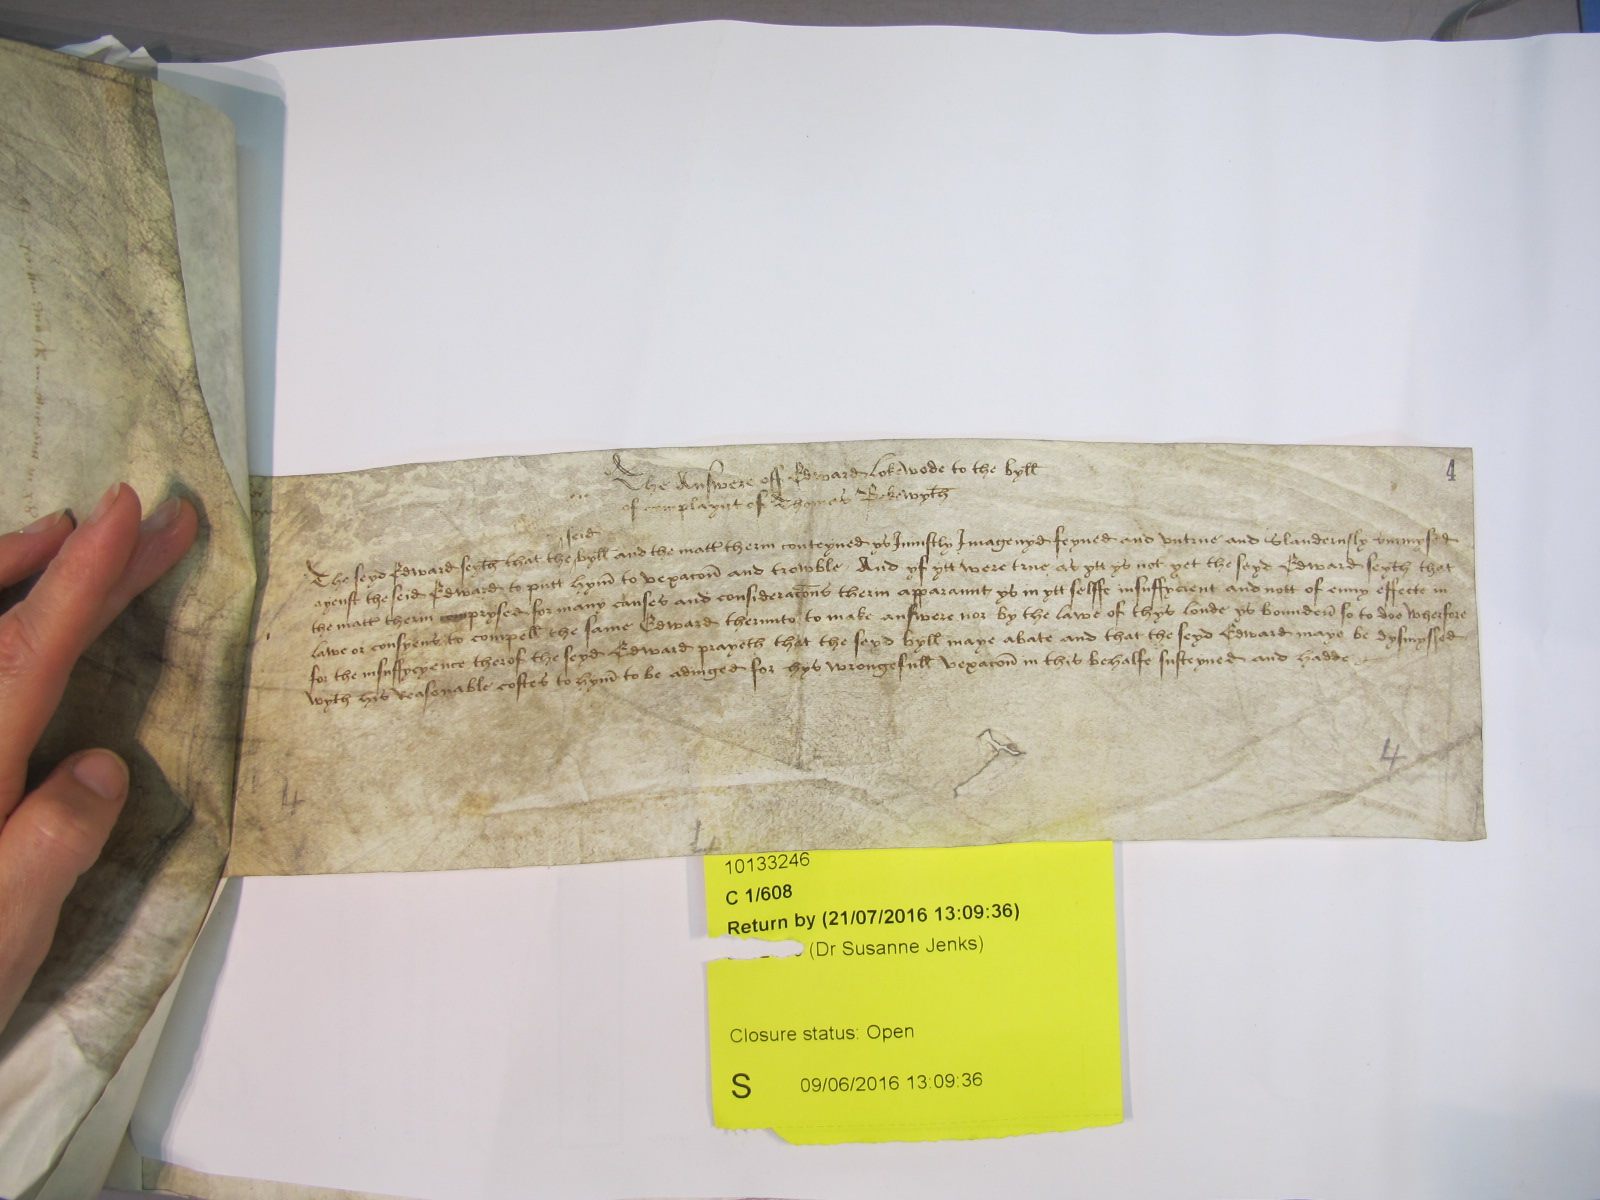 The Answere off Edward Lokwode to the byll
of complaynt of Thomas Bekewyth
4
seid
The seyd Edward seyth that the byll and the matt therin conteyned ys Iniustly Imagenyd feyned and vntrue and Slanderusly surmysed
ayenst the seid Edward to putt hym to vexacon and trowble And yf ytt were true as ytt ys not yet the seyd Edward seyth that
the matt therin comprysed for many causes and consideracons therin apparaunt ys in ytt selffe insuffycient and nott of enny effecte in
lawe or consyens to compell the same Edward therunto to make answere nor by the lawe of thys londe ys bounden so to doe Wherfore
for the insuffycyence therof the seyd Edward prayeth that the seyd byll maye abate and that the seyd Edward maye be dysmyssed
wyth his reasonable costes to hym to be adiuged for hys wrongefull vexacon in this behalfe susteyned and hadde
4
4
10133246
C 1/608
Return by (21/07/2016 13:09:36)
(Dr Susanne Jenks)
Closure status: Open
S 09/06/2016 13:09:36